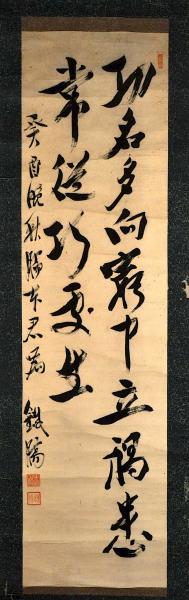 功名多向窮中立禍患
常從巧處生
癸酉晩秋
鐵舟